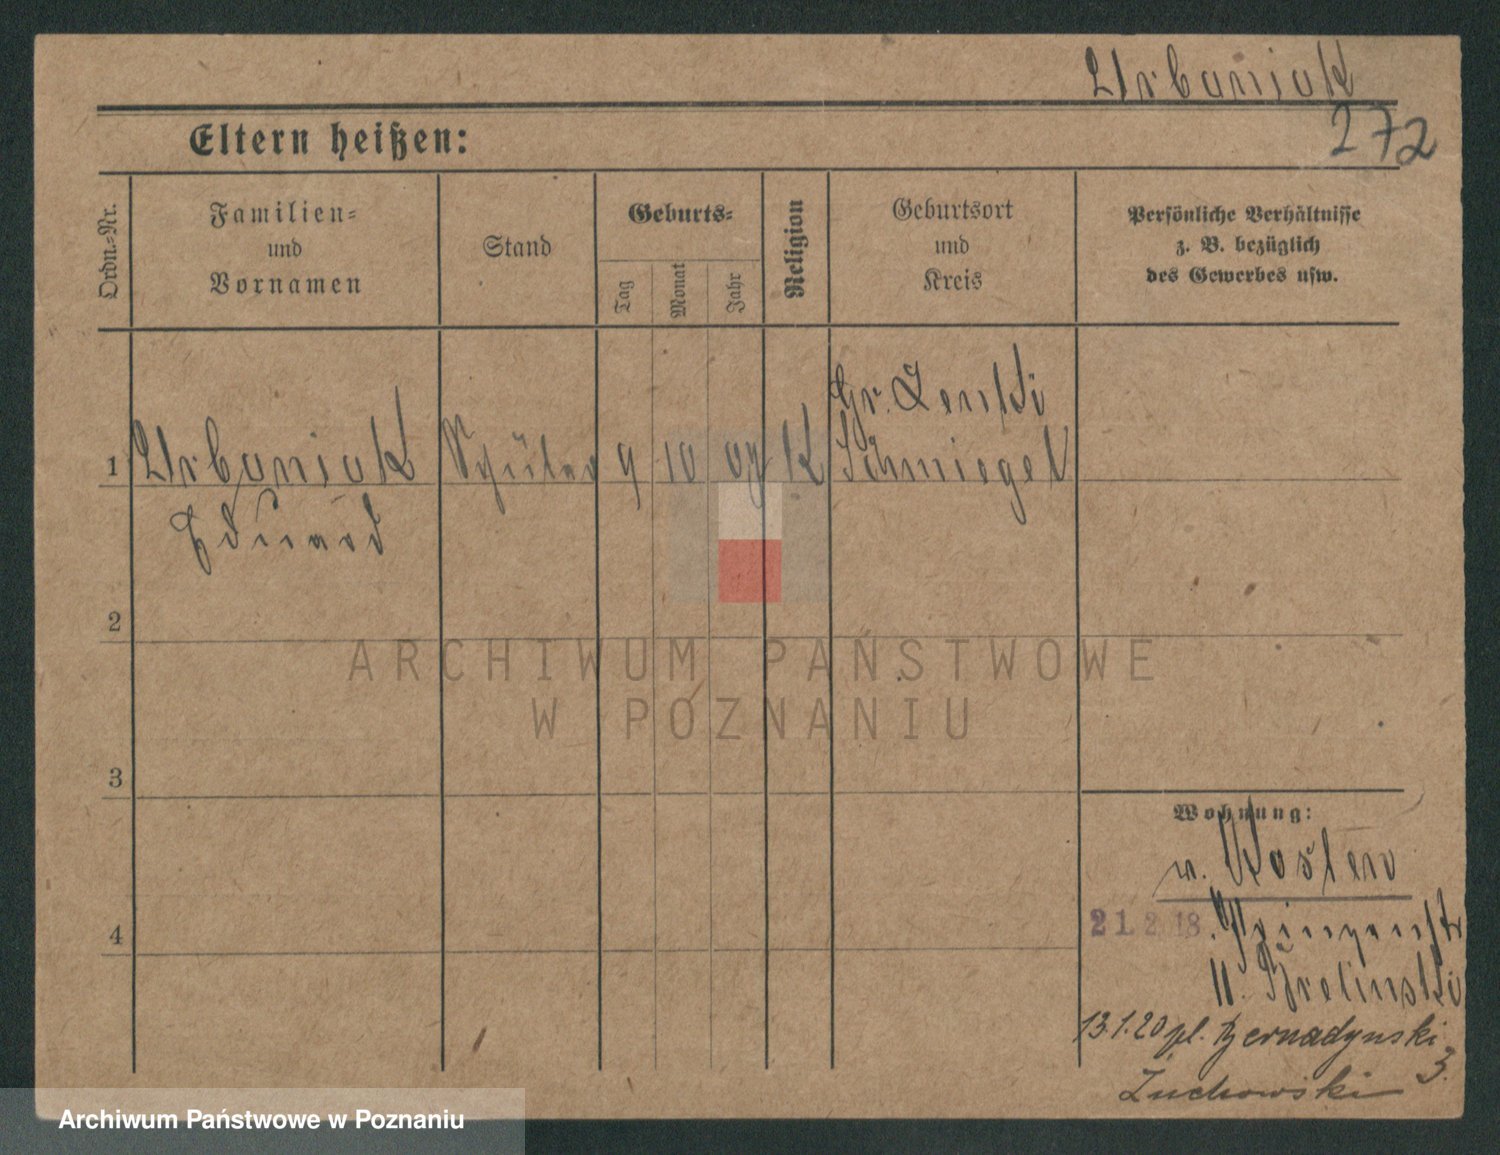 Urbaniak
272
Eltern heißen:
Ordn.-Nr.
Familien-
und
Vornamen
Stand
Geburts-
Tag
Monat
Jahr
Religion
Geburtsort
und
Kreis
Persönliche Verhältnisse
z. B. bezüglich
des Gewerbes usw.
1
Urbaniak
Eduard
Schüler
9
10
07
K
Gr. Lenki
Schmiegel
2
3
4
Wohnung:
v. Kosten
21.2.18.
11.
13.1.20 pl. Bernadynski
3.
Żuchowski
ARCHIWUM PAŃSTWOWE
W POZNANIU
Archiwum Państwowe w Poznaniu